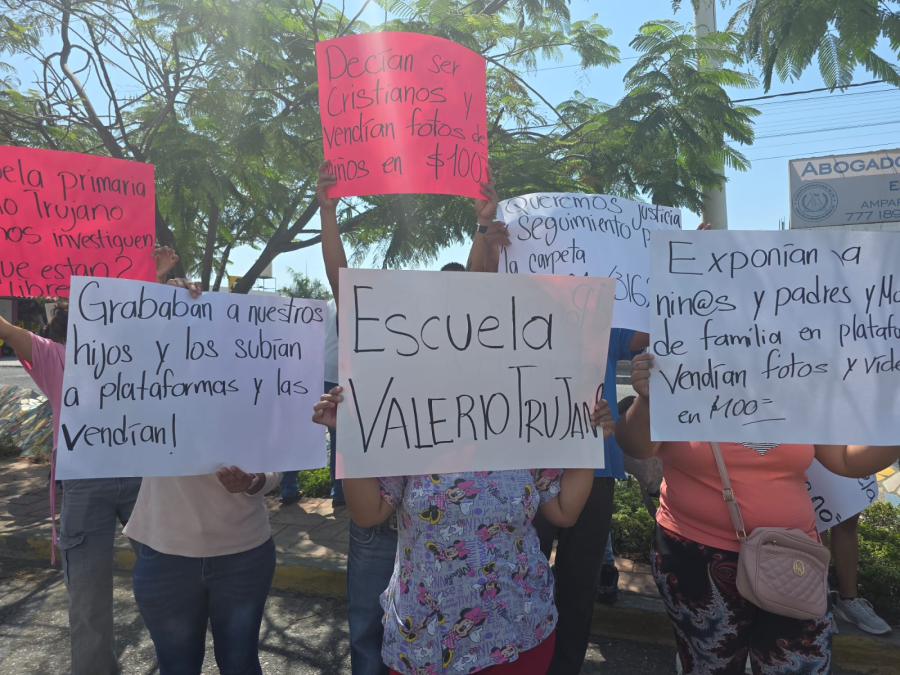 Decían ser
Cristianos y
Vendrían fotos de
niños en $100
uela primaria
io Trujano
nos investiguen
que estan?
libre
Queremos justicia
seguimiento
la carpeta
316
Exponían a
niñ@s y padres y Ma
de familia en platafo
Vendrían fotos y vide
en $100=
Grababan a nuestros
hijos y los subían
a plataformas y las
vendían!
Escuela
VALERIO TRUJANO
ABOGADO
E
AMPAR
777 189